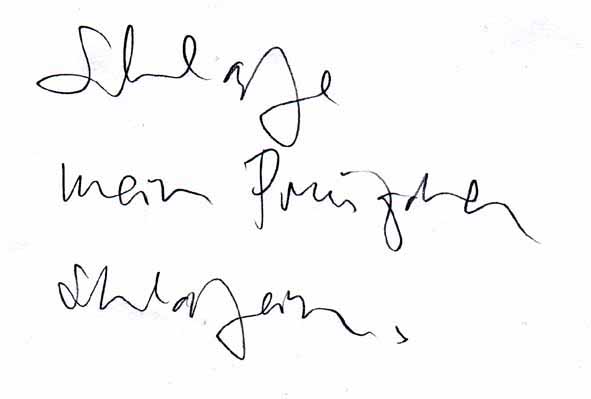 Schlafe
mein Prinzchen
Schlafein,